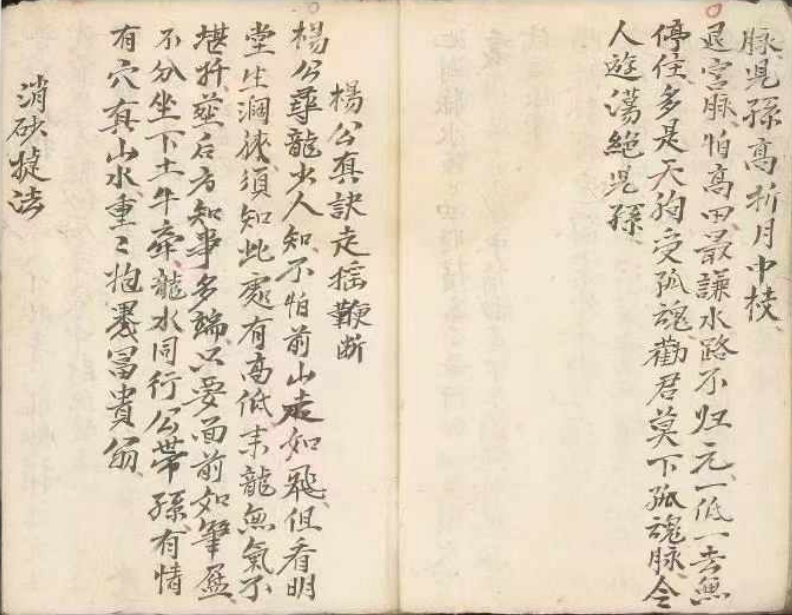 脉児孫高折月中枝
退宫脉怕高田最謙水路不归元一低一去無
停住多是天狗受孤魂勸君莫下孤魂脉令
人遊蕩絶児孫
楊公真訣走摇鞭断
楊公尋龍少人知不怕前山走如飛但看明
堂生濶狹須知此處有高低来龍無氣不
堪扦塟后方知事多端只要面前如筆
不分坐下土牛牽龍水同行公帶孫有情
有穴真山水重〻抱裹冨貴翁
消砂捷法